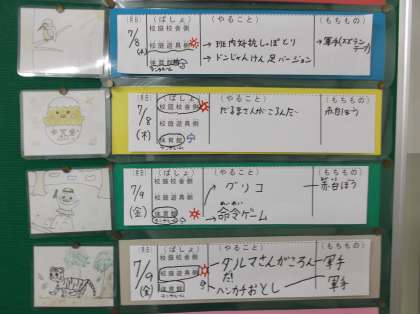 （月日）（ばしょ）（やること）（もちもの）
7/8
校庭校舎側
校庭遊具側
→班内対抗しっぽとり
→軍手
(水)
体育館
→ドンじゃんけん足バージョン
（月日）（ばしょ）（やること）（もちもの）
7/8
校庭校舎側
だるまさんがころんだ
赤白ぼう
校庭遊具側
(木)
体育館
（月日）（ばしょ）（やること）（もちもの）
7/9
校庭校舎側
グリコ
赤白ぼう
校庭遊具側
(金)
体育館
→命令ゲーム
（月日）（ばしょ）（やること）（もちもの）
7/9
校庭校舎側
ダルマさんがころん
軍手
校庭遊具側
だ!
(金)
体育館
ハンカチおとし
軍手